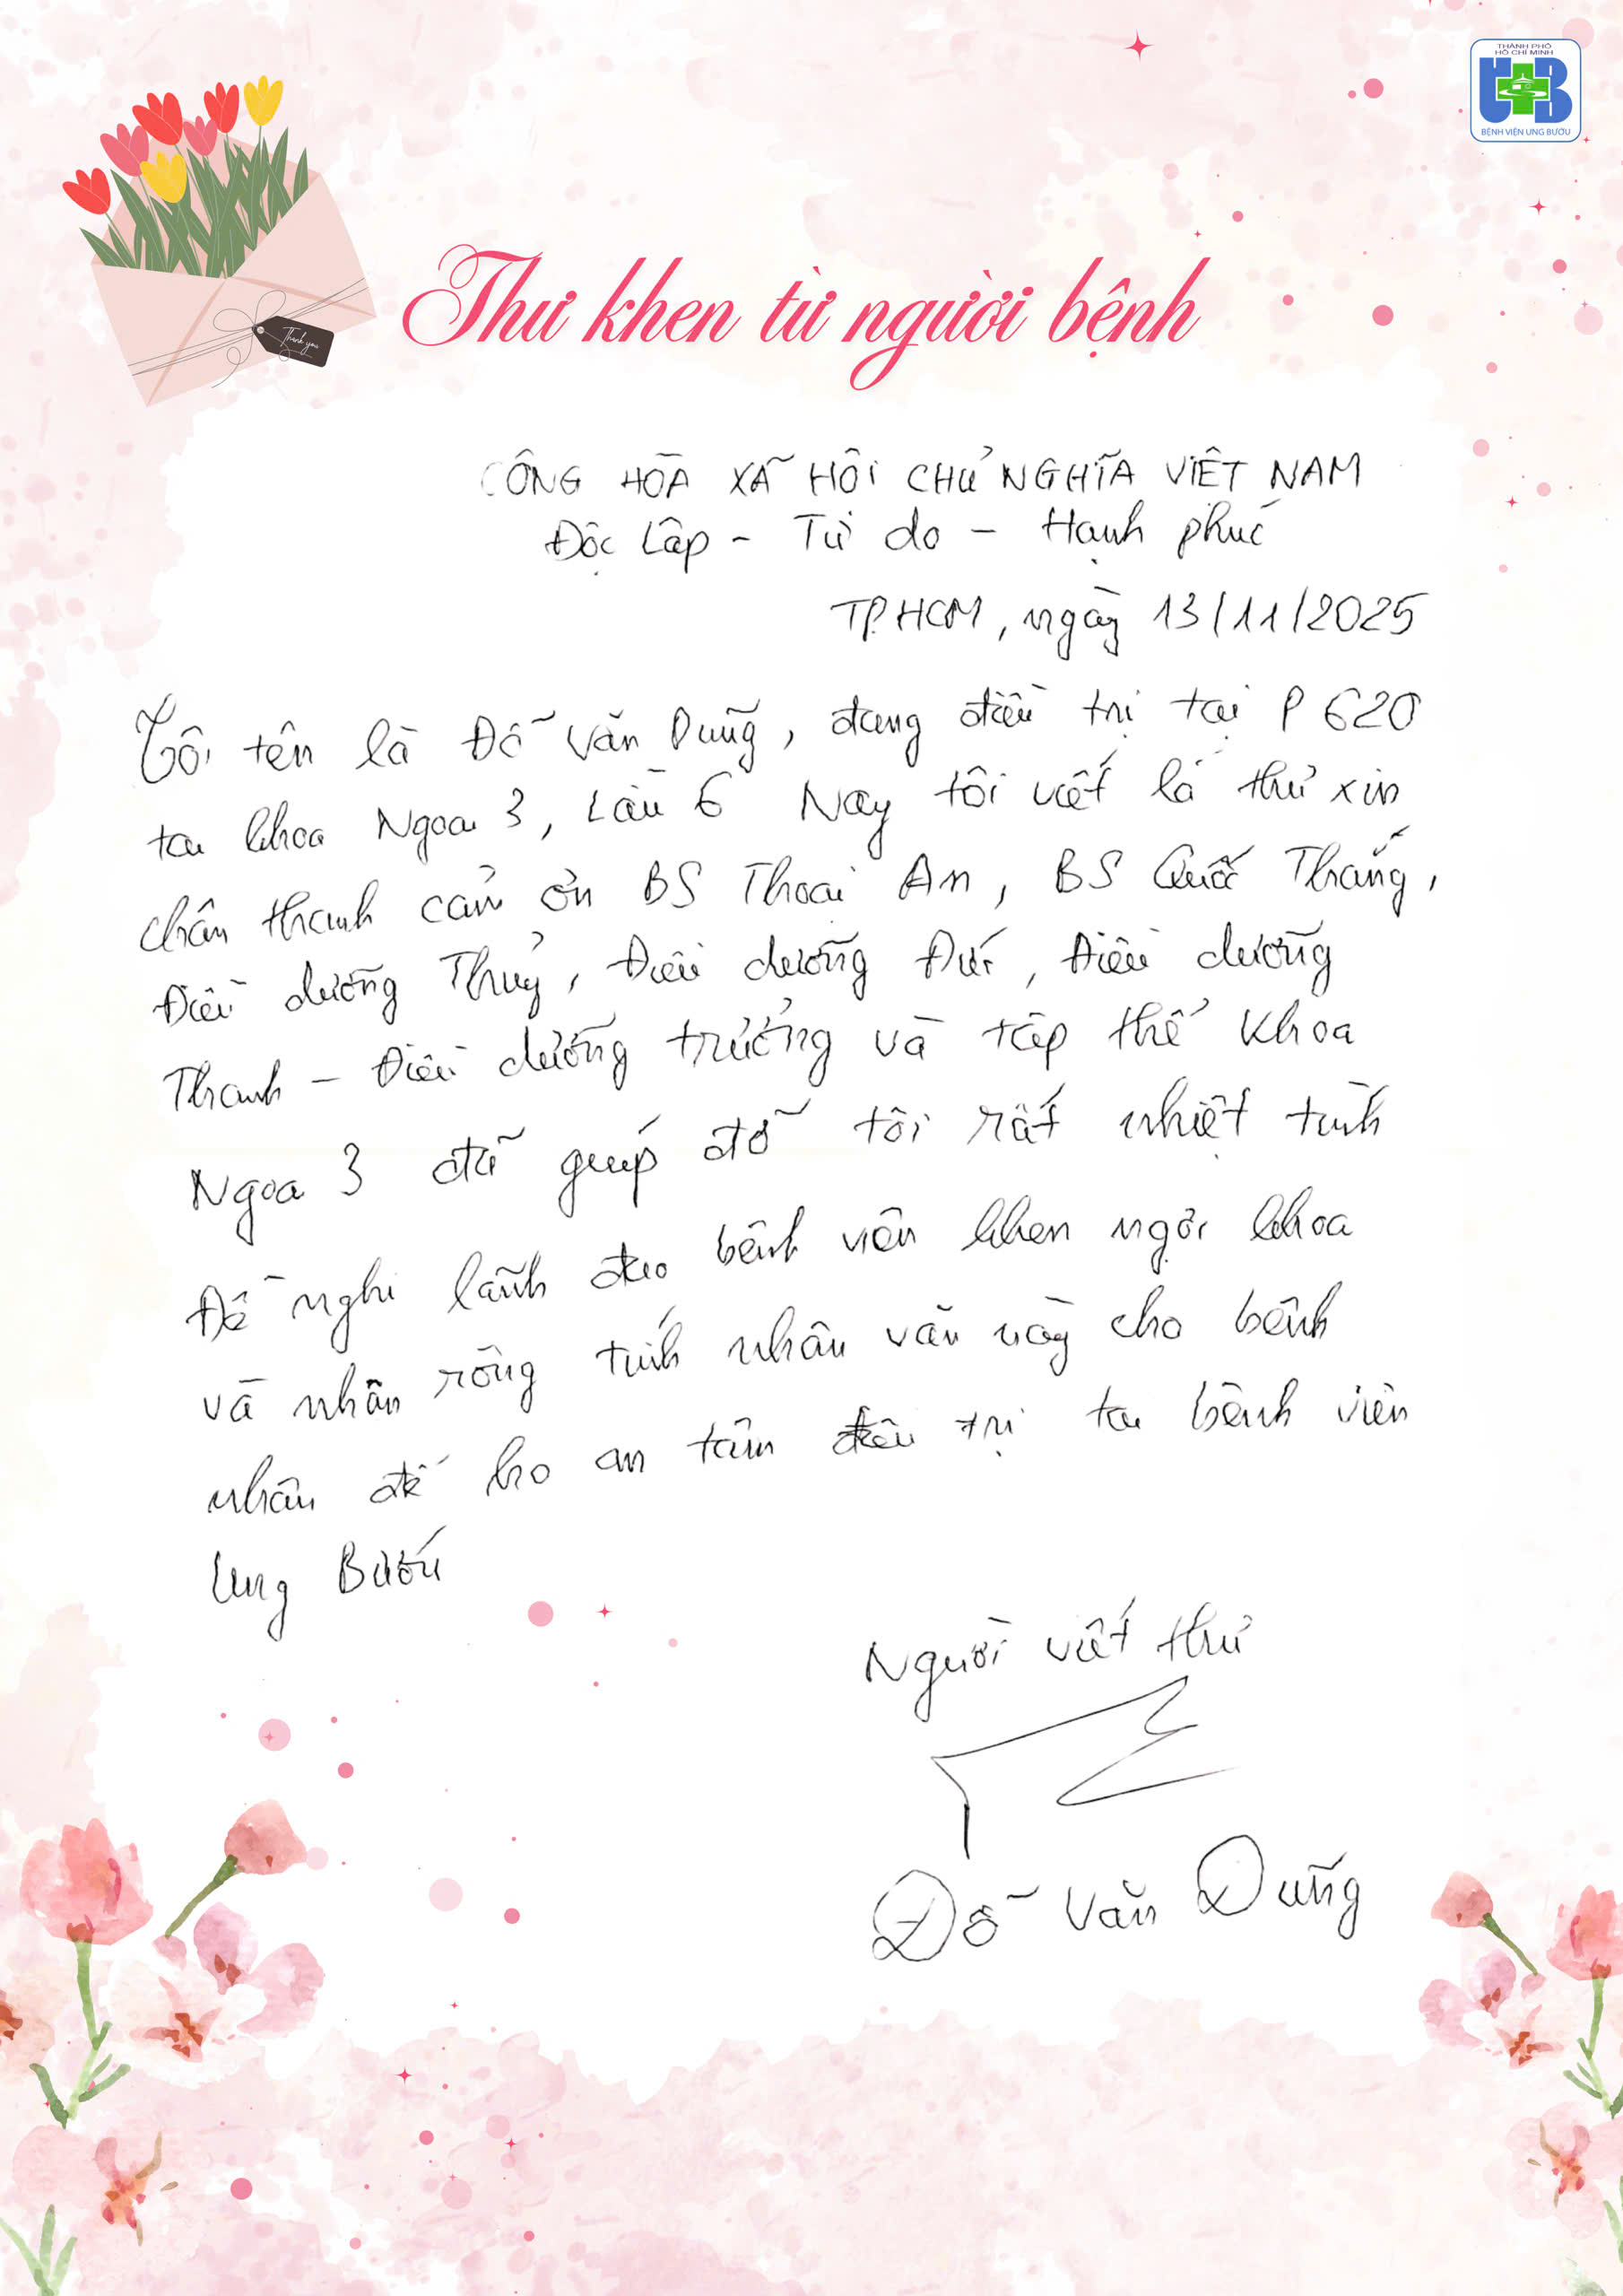 THÀNH PHỐ
HỒ CHÍ MINH
UB
BỆNH VIỆN UNG BƯỚU
Thank you
Thư khen từ người bệnh
CÔNG HÒA XÃ HÔI CHỦ NGHĨA VIÊT NAM
Độc Lâp - Tử do - Hạnh phúc
TP.HCM, ngày 13/11/2025
Tôi tên là Đỗ Văn Dũng, đang điều trị tại P 620
tại khoa Ngoại 3, Lầu 6 Nay tôi viết lá thử xin
chân thanh cảm ơn BS Thoại An, BS Quốc Thắng,
Điều dưỡng Thuỷ, Điều dưỡng Đức, Điều dưỡng
Thanh - Điều dưỡng trưởng và tâp thể Khoa
Ngoại 3 đã giúp đỡ tôi rất nhiệt tình
Đề nghi lãnh đạo bênh viên khen ngơi khoa
và nhân rông tính nhân văn này cho bênh
nhân để họ an tâm điều trị tại bênh viên
Ung Bướu
Người viết thử
Đỗ Văn Dũng